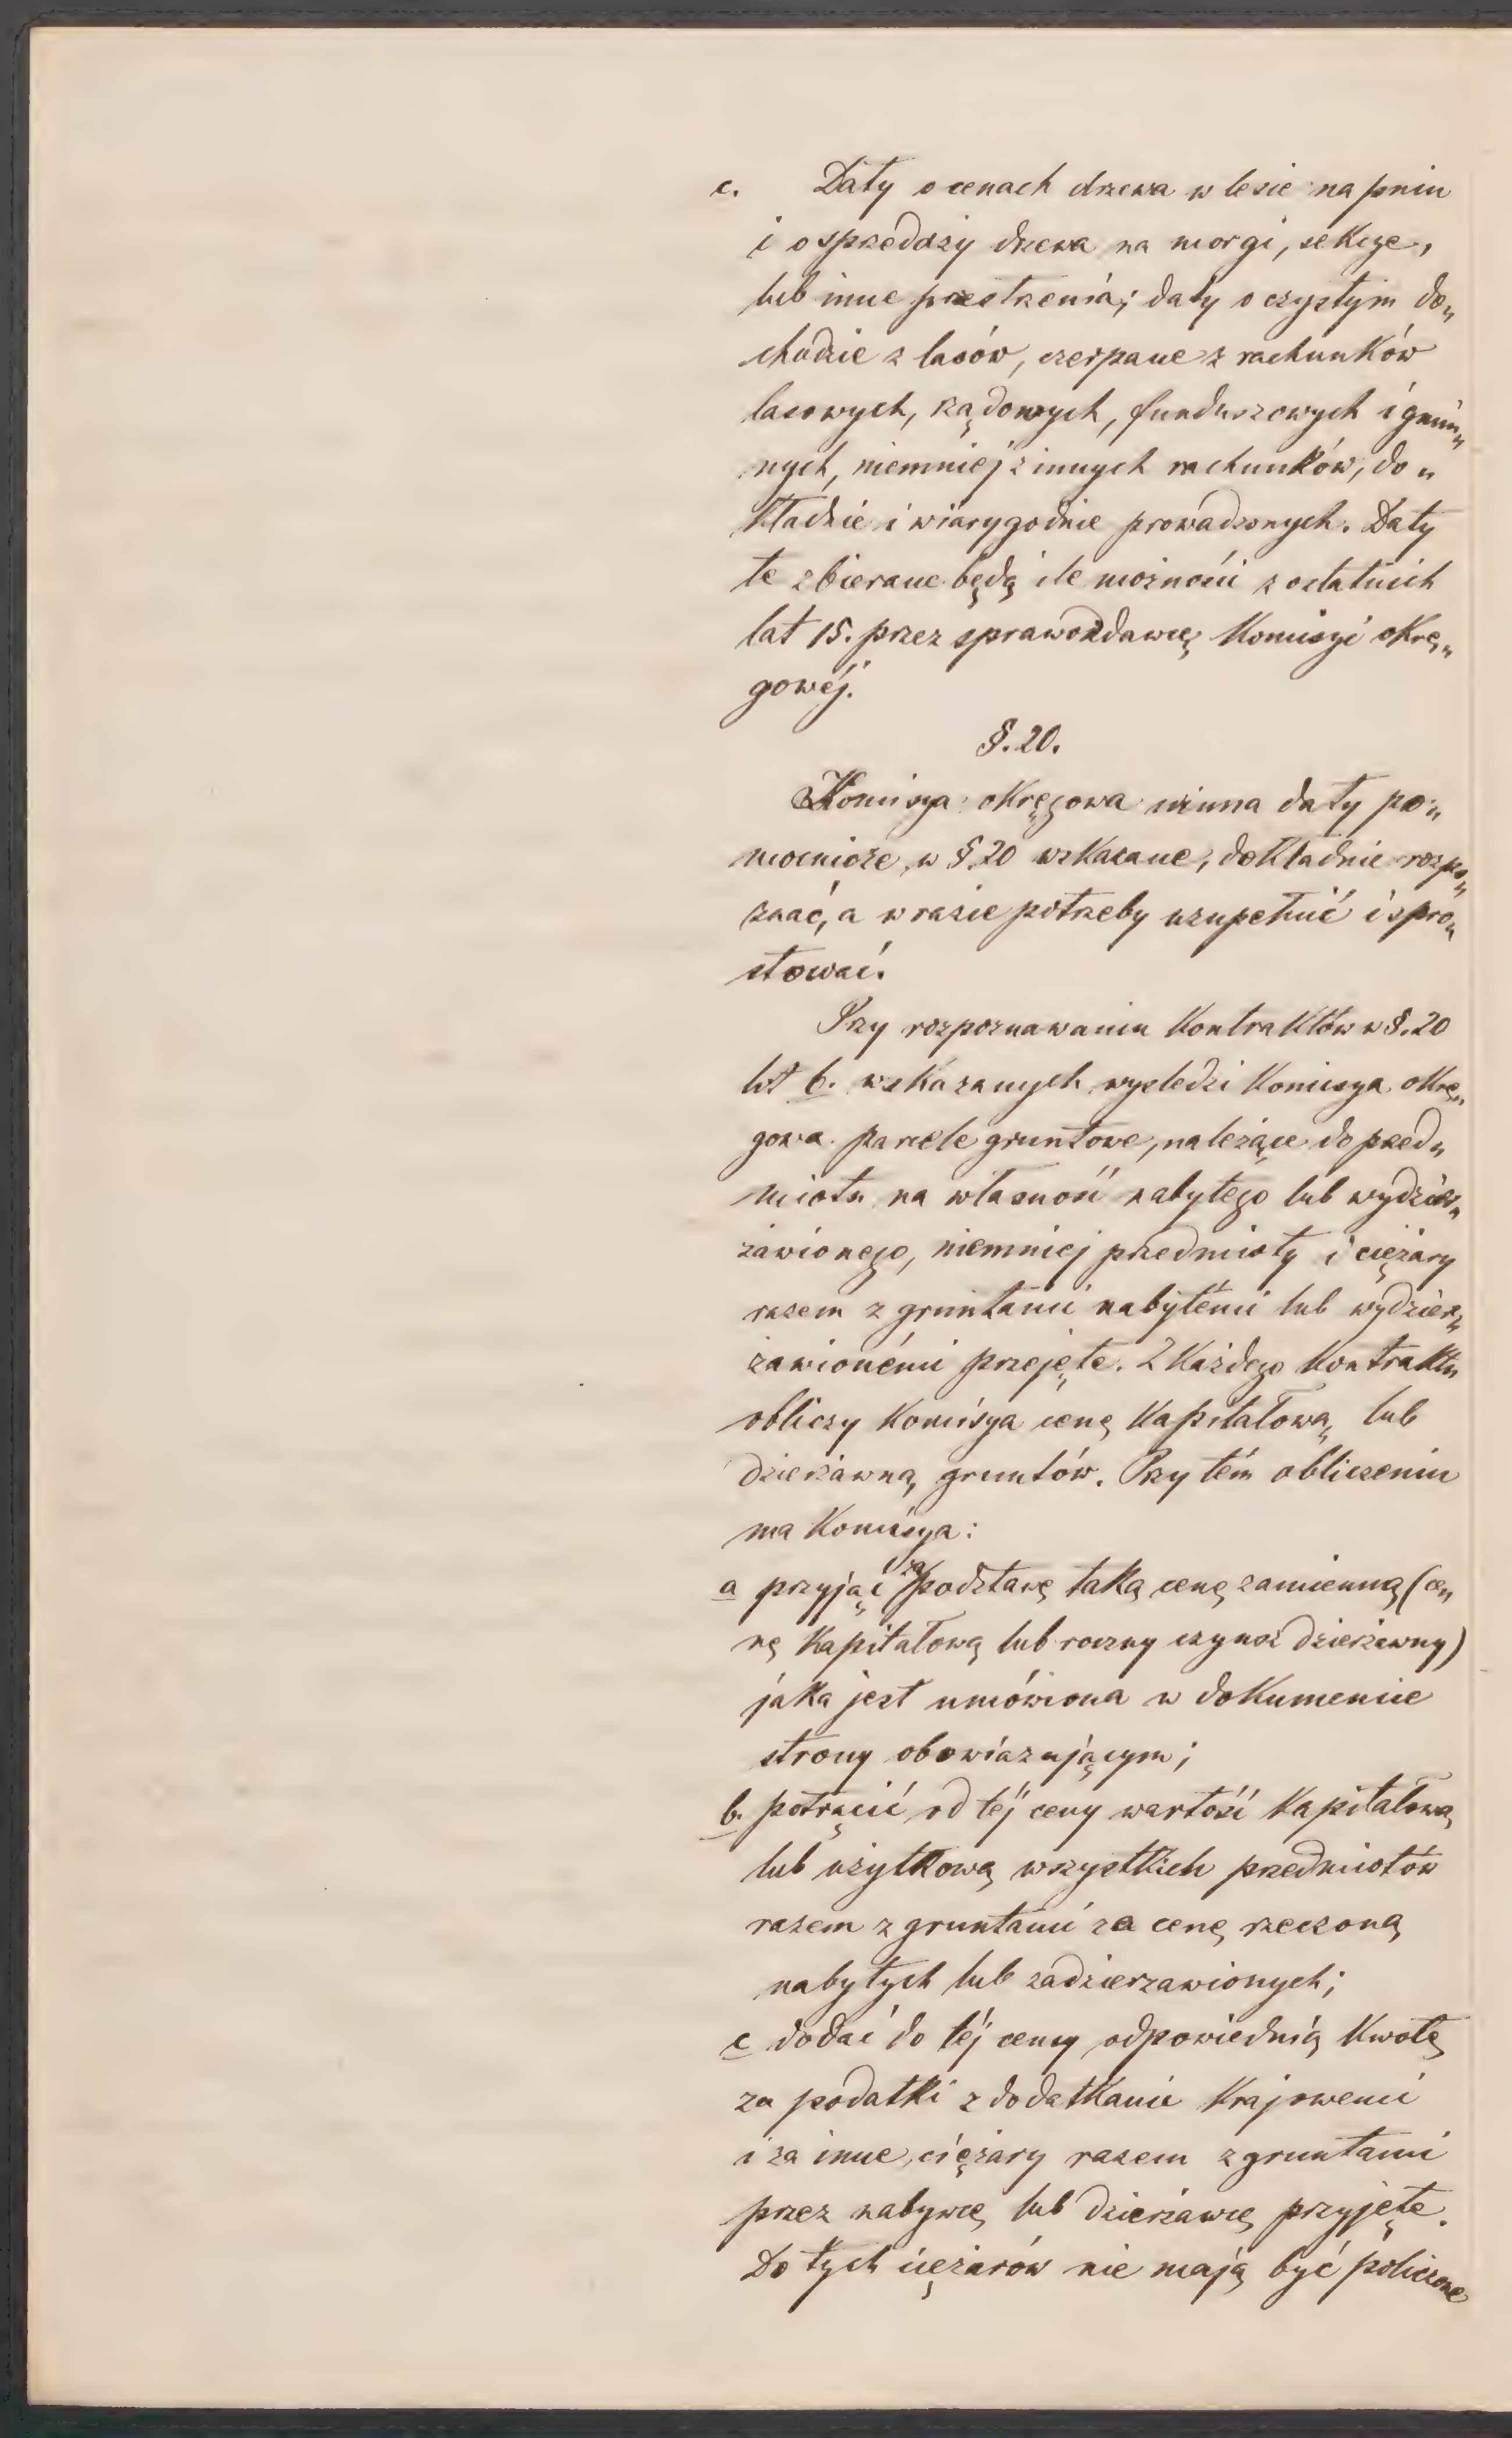 c. Daty o cenach drzewa w lesie na pniu
i o sprzedaży drzewa na morgi, sekcye,
lub inne przestrzenia; daty o czystym do„
chodzie z lasów, czerpane z rachunków
lasowych, rządowych, funduszowych i gmin„
nych, niemniej z innych rachunków, do„
kładnie i wiarygodnie prowadzonych. Daty
te zbierane będą ile możności z ostatnich
lat 15. przez sprawozdawcę Komisyi okrę„
gowéj.
§. 20.
Komisya okręgowa winna daty po„
mocnicze, w §. 20 wskazane, dokładnie rozpo„
znać, a w razie potrzeby uzupełnić i spro„
stować.
Przy rozpoznawaniu kontraktów w §. 20
lit b. wskazanych wyśledzi Komisya okrę„
gowa parcele gruntowe, należące do przed„
miotu na własność nabytego lub wydzier„
żawionego, niemniej przedmioty i ciężary
razem z gruntami nabytémi lub wydzier„
żawionémi przejęte. Z każdego kontraktu
obliczy Komisya cenę kapitałową lub
dzierżawną gruntów. Przy tém obliczeniu
ma Komisya:
a przyjąć za podstawę taką cenę zamienną (ce„
nę kapitałową lub roczny czynsz dzierżawny)
jaka jest umówiona w dokumencie
strony obowiązującym;
b. potrącić od téj ceny wartość kapitałową
lub użytkową wszystkich przedmiotów
razem z gruntami za cenę rzeczoną
nabytych lub zadzierzawionych;
c dodać do téj ceny odpowiednią kwotę
za podatki z dodatkami krajowemi
i za inne ciężary razem z gruntami
przez nabywcę lub dzierżawcę przyjęte.
Do tych ciężarów nie mają być policzone